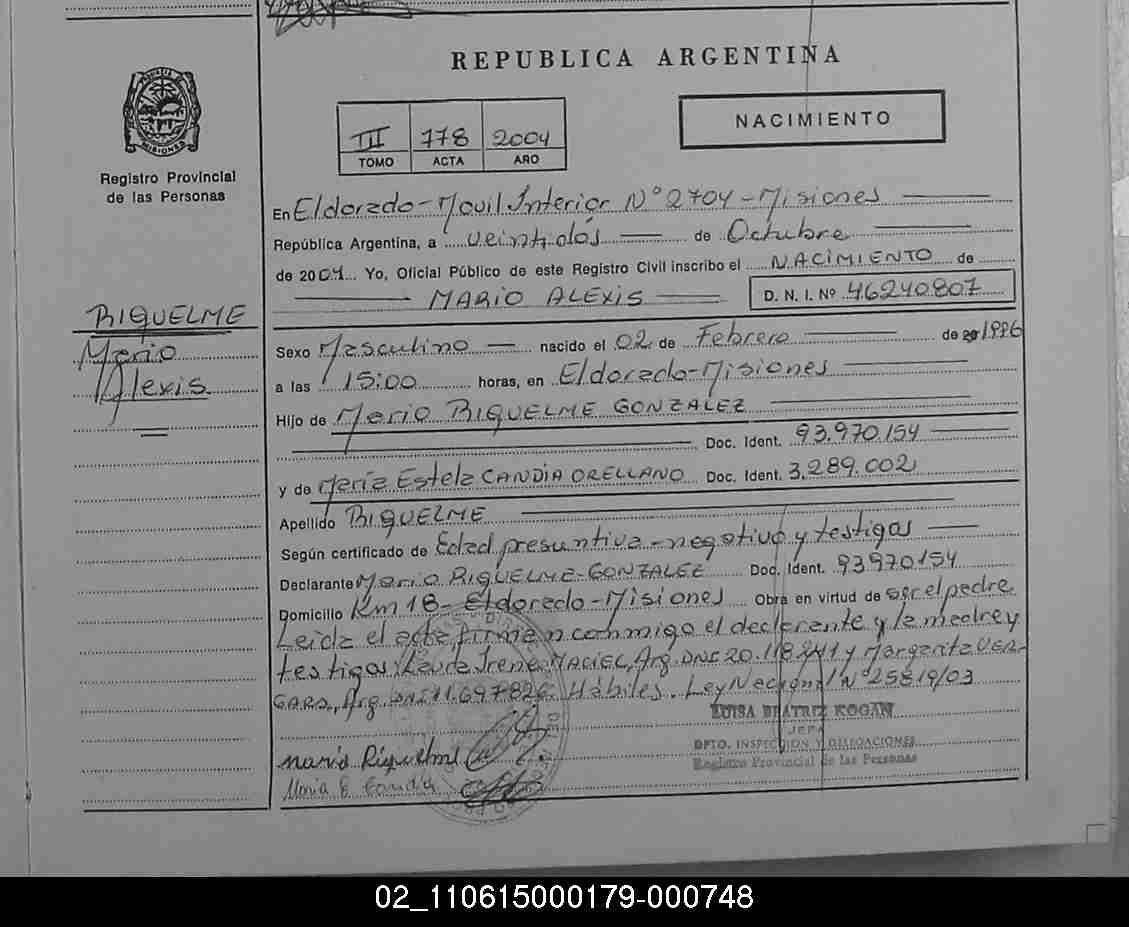 REPUBLICA ARGENTINA
MISIONES
Registro Provincial
de las Personas
III 778 2004
TOMO ACTA AÑO
NACIMIENTO
En Eldorado - Movil Interior Nº 2704 - Misiones
República Argentina, a veintidós de Octubre
de 2004 Yo, Oficial Público de este Registro Civil inscribo el NACIMIENTO de
MARIO ALEXIS D. N. I. Nº 46240.807
RIQUELME
Mario
Alexis
Sexo Masculino nacido el 02 de Febrero de 1996
a las 15:00 horas, en Eldorado - Misiones
Hijo de Mario RIQUELME GONZALEZ
Doc. Ident. 93.970.154
y de María Estela CANDIA ORELLANO Doc. Ident. 3.289.002
Apellido RIQUELME
Según certificado de Edad presuntiva - negativo y testigos
Declarante Mario RIQUELME - GONZALEZ Doc. Ident. 93970154
Domicilio Km 18 - Eldorado - Misiones Obra en virtud de ser el padre
Leida el acta firman conmigo el declarante y la madre y
testigos: Laura Irene MACIEL, Arg. DNI 20.118.241 y Margarita VER-
GARA, Arg. DNI 11.697826 Hábiles. Ley Nacional Nº 25819/03
LUISA BEATRIZ KOGAN
JEFA
DPTO. INSPECCION Y DELEGACIONES
Registro Provincial de las Personas
Mario Riquelme
Maria E Candia
02_110615000179-000748